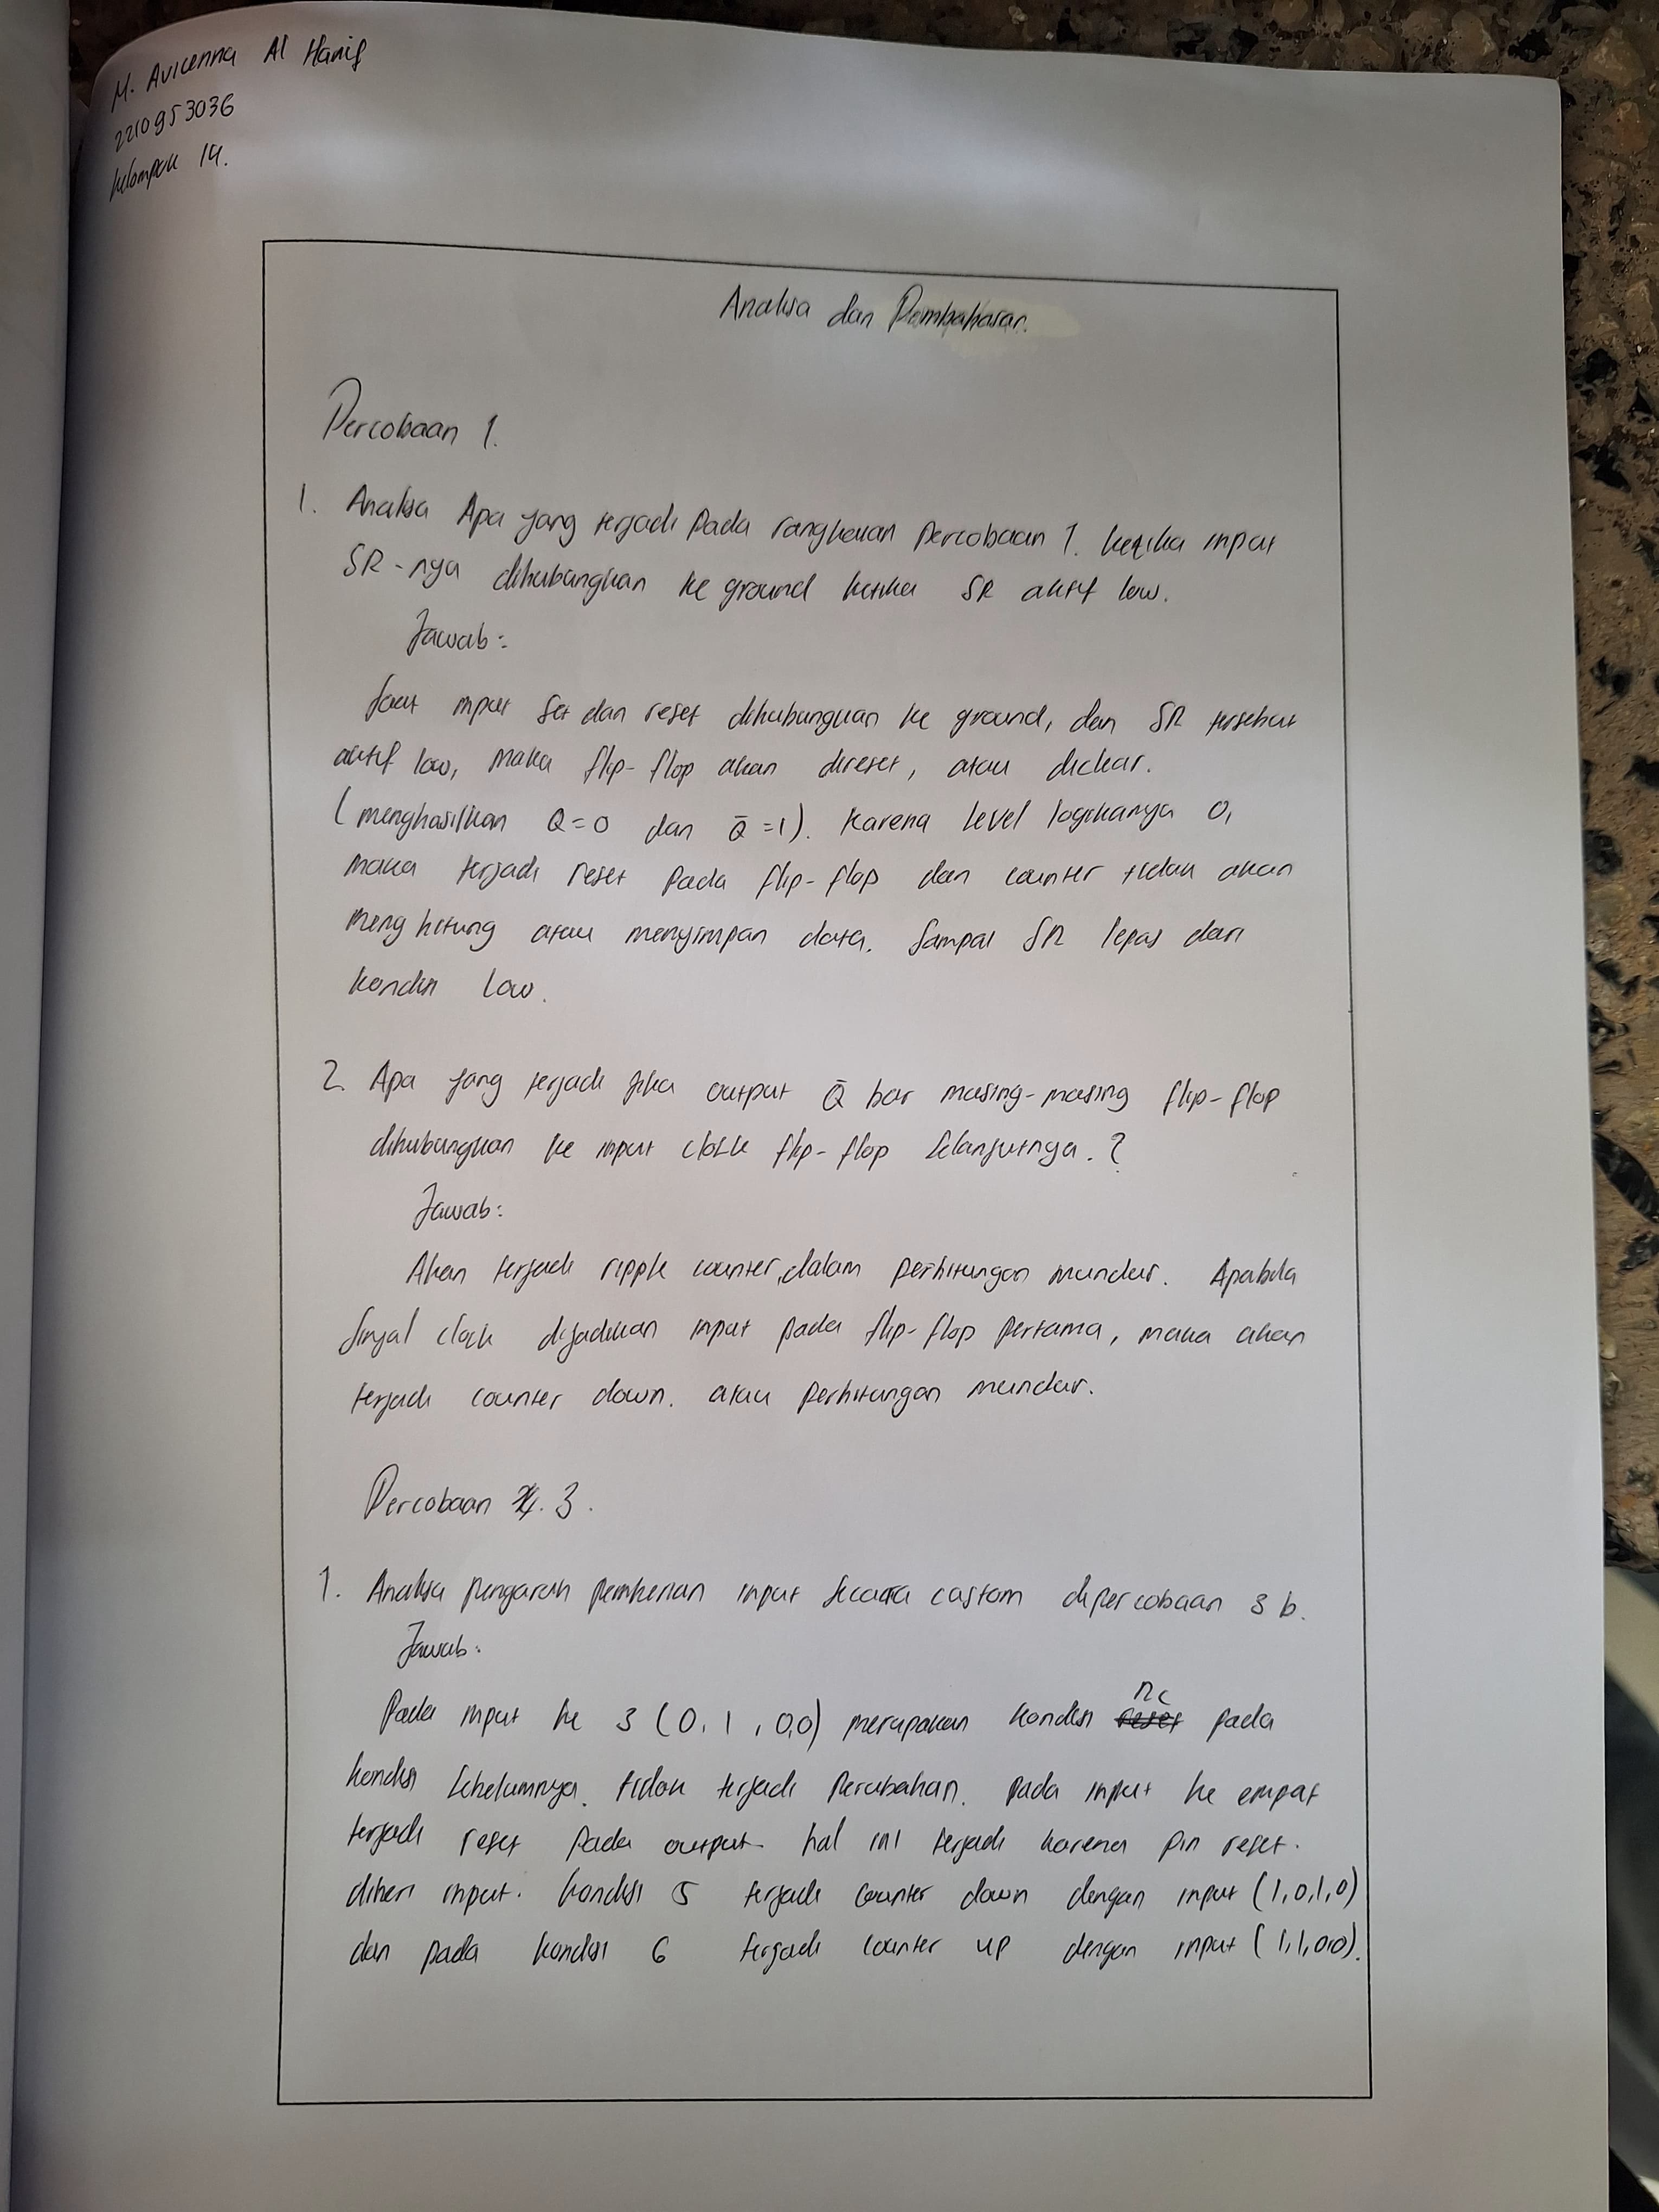 M. Avicenna Al Hanif
2210953036
kelompok 14.
Analisa dan Pembahasan.
Percobaan 1.
1. Analisa Apa yang terjadi pada rangkaian percobaan 1. ketika input
SR-nya dihubungkan ke ground ketika SR aktif low.
Jawab:
Saat input Set dan reset dihubungkan ke ground, dan SR tersebut
aktif low, maka flip-flop akan direset, atau diclear.
(menghasilkan Q=0 dan Q̄=1). Karena level logikanya 0,
maka terjadi reset pada flip-flop dan counter tidak akan
menghitung atau menyimpan data. Sampai SR lepas dari
kondisi low.
2. Apa yang terjadi jika output Q̄ bar masing-masing flip-flop
dihubungkan ke input clock flip-flop selanjutnya.?
Jawab:
Akan terjadi ripple counter, dalam perhitungan mundur. Apabila
sinyal clock dijadikan input pada flip-flop pertama, maka akan
terjadi counter down. atau perhitungan mundur.
Percobaan 3.
1. Analisa pengaruh pemberian input secara custom dipercobaan 3 b.
Jawab:
Pada input ke 3 (0,1,0,0) merupakan kondisi nc pada
kondisi sebelumnya. tidak terjadi perubahan. pada input ke empat
terjadi reset pada output. hal ini terjadi karena pin reset.
diberi input. kondisi 5 terjadi counter down dengan input (1,0,1,0)
dan pada kondisi 6 terjadi counter up dengan input (1,1,0,0).